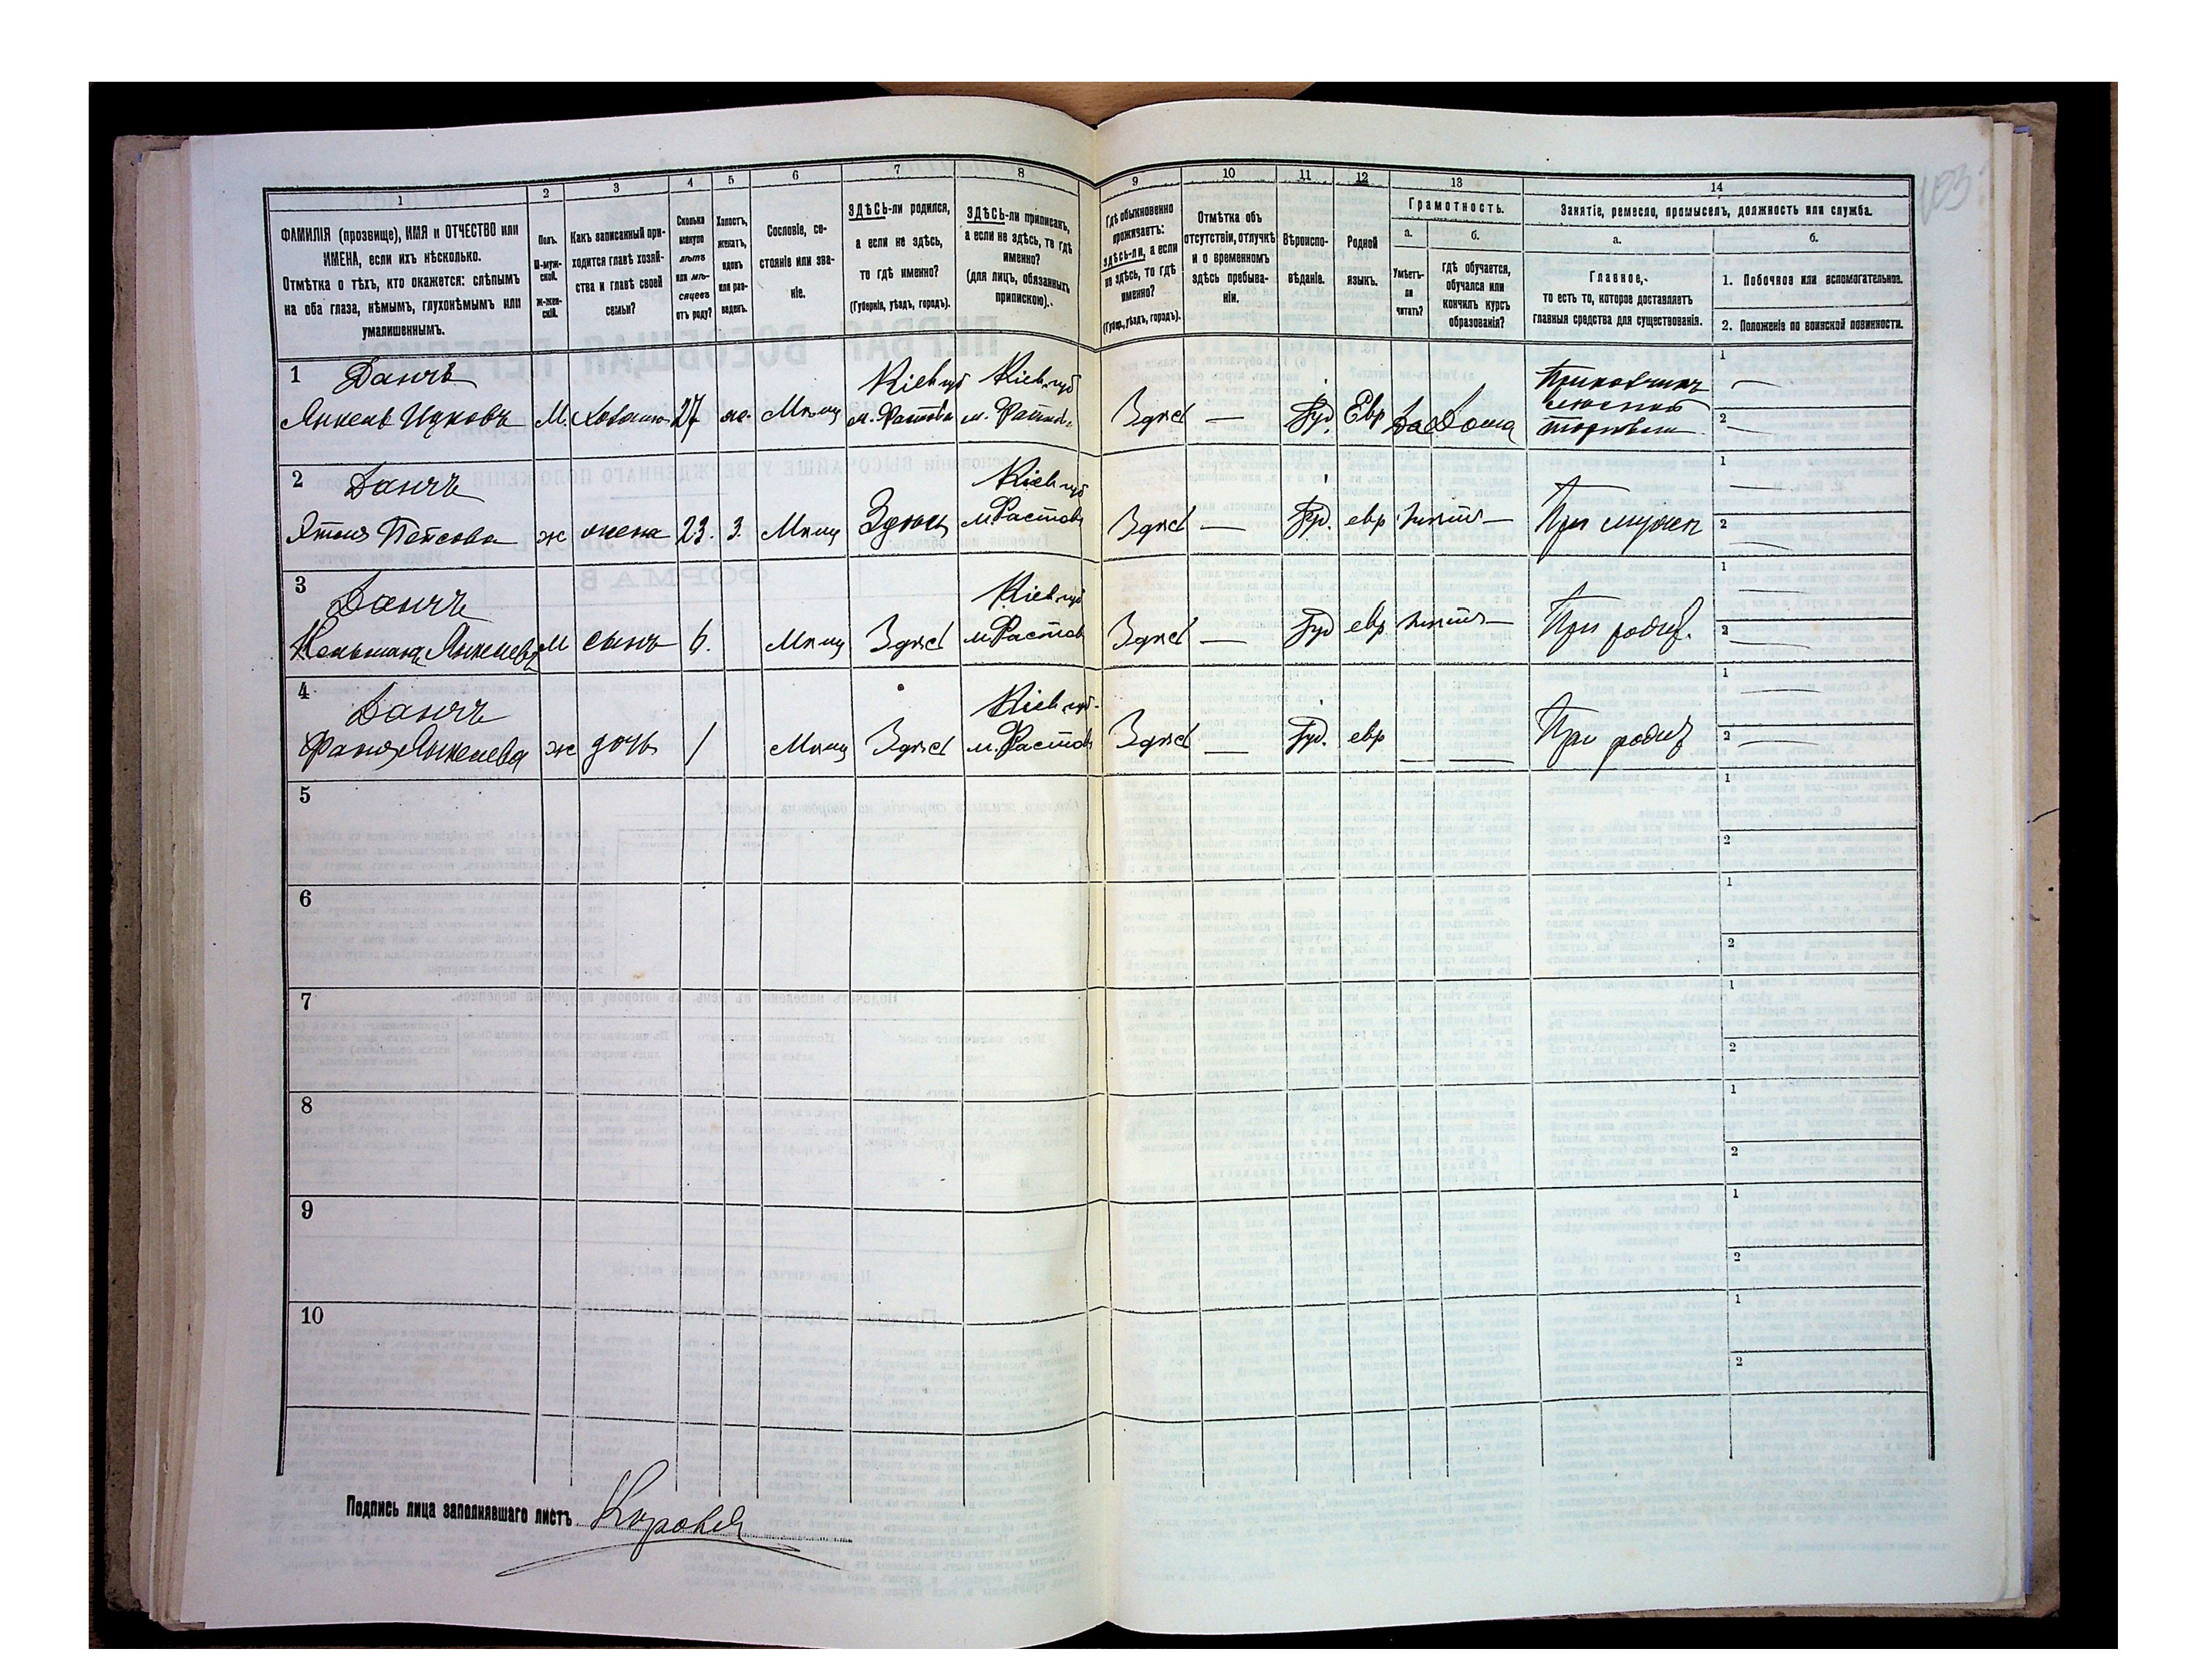 1 2 3 4 5 6 7 8 9 10 11 12 13 14
ФАМИЛІЯ (прозвище), ИМЯ и ОТЧЕСТВО или ИМЕНА, если ихъ нѣсколько.
Отмѣтка о тѣхъ, кто окажется: слѣпымъ на оба глаза, нѣмымъ, глухонѣмымъ или умалишеннымъ.
Полъ.
М-мужской.
Ж-женскій.
Какъ записанный приходится главѣ хозяйства и главѣ своей семьи?
Сколько минуло лѣтъ или мѣсяцевъ отъ роду?
Холостъ, женатъ, вдовъ или разведенъ.
Сословіе, состояніе или званіе.
ЗДѢСЬ-ли родился, а если не здѣсь, то гдѣ именно?
(Губернія, уѣздъ, городъ).
ЗДѢСЬ-ли приписанъ, а если не здѣсь, то гдѣ именно?
(для лицъ, обязанныхъ припискою).
Гдѣ обыкновенно проживаетъ: здѣсь-ли, а если не здѣсь, то гдѣ именно?
(Губер., уѣздъ, городъ).
Отмѣтка объ отсутствіи, отлучкѣ и о временномъ здѣсь пребываніи.
Вѣроисповѣданіе.
Родной языкъ.
Грамотность.
а.
Умѣетъ-ли читать?
б.
гдѣ обучается, обучался или кончилъ курсъ образованія?
Занятіе, ремесло, промыселъ, должность или служба.
а.
Главное,
то есть то, которое доставляетъ главныя средства для существованія.
б.
1. Побочное или вспомогательное.
2. Положеніе по воинской повинности.
1 Данчъ
Янкель Ицковъ М. хозяинъ 27 ж. Мѣщ Кіев губ м. Фастовъ Кіев. губ м. Фастов. Здѣсь — Іуд. Евр Да Дома Приказчикъ торговли 1 — 2 —
2 Данчъ
ж жена 23. з. Мѣщ Здѣсь Кіев губ м. Фастовъ Здѣсь — Іуд. евр. — При мужѣ 1 — 2 —
3 Данчъ
Янкелевъ М сынъ 6. Мѣщ Здѣсь Кіев губ м. Фастов Здѣсь — Іуд евр — При родит. 1 — 2 —
4 Данчъ
Фаня Янкелева ж дочь 1 Мѣщ Здѣсь Кіев. губ. м. Фастов Здѣсь — Іуд. евр — — При родит 1 — 2 —
5 1 2
6 1 2
7 1 2
8 1 2
9 1 2
10 1 2
Подпись лица заполнявшаго листъ